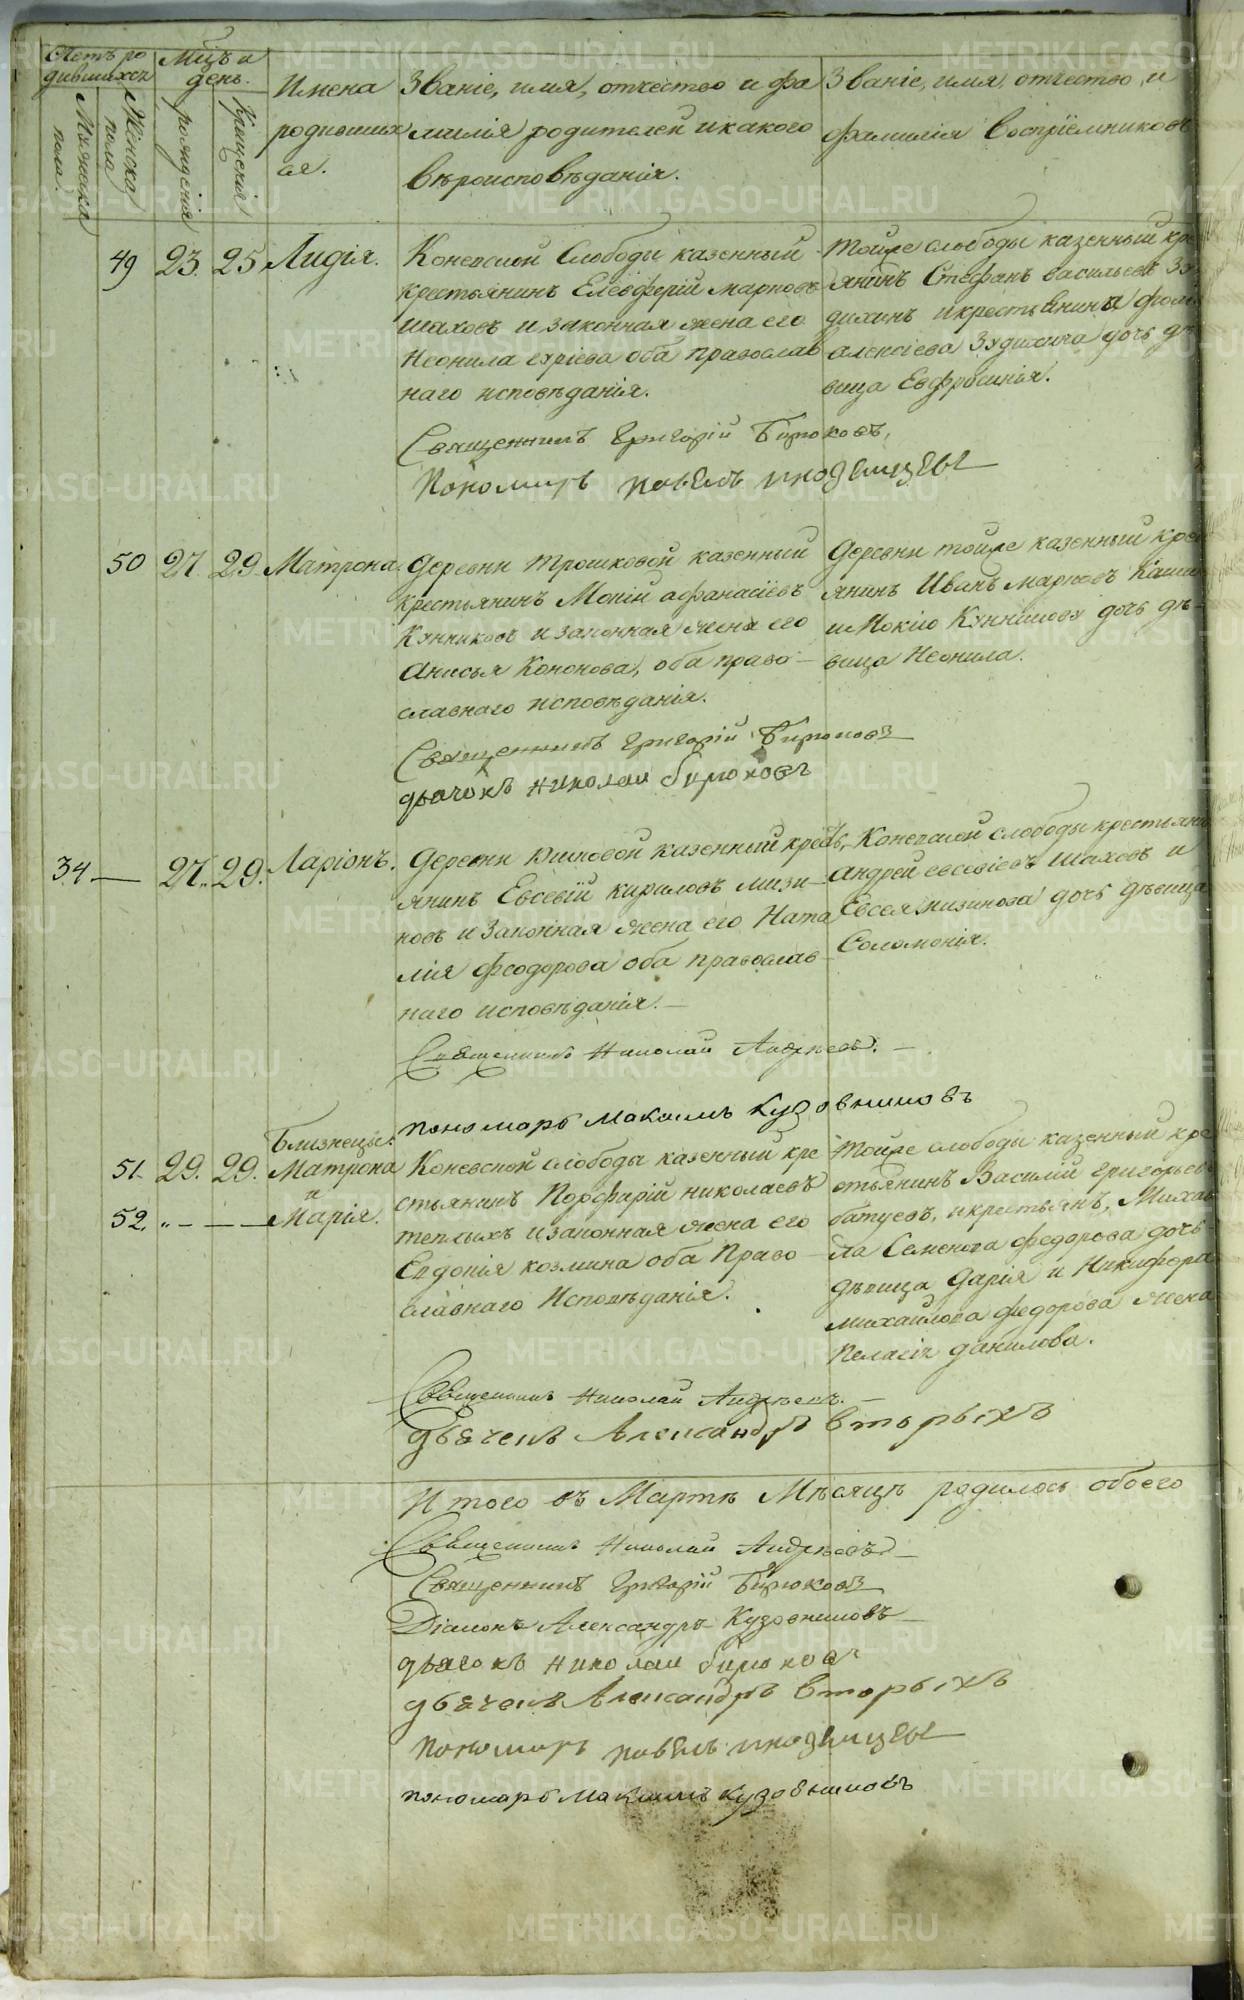 Счетъ ро
дившихся
Мѣцъ и
день.
Мужеска
пола.
Женска
пола
рожденія
Крещенія
Имена
родивших
ся.
Званіе, имя, отчество и фа
милія родителей и какого
вѣроисповѣданія.
Званіе, имя, отчество, и
фамилія Воспріемниковъ
49 23. 25 Лидія.
Коневской Слободы казенный
крестьянинъ Елевферій марковъ
Шаховъ и законная жена его
Неонила оба православ
наго исповѣданія.
Священникъ Григорій Бирюковъ,
Пономарь павелъ иноземцевъ
Тойже слободы казенный кре
янинъ Стефанъ васильевъ
и крестьянина
алексіева дочь дѣ
вица Евфросинія.
50 27. 29. Матрона.
Деревни Трошковой казенный
крестьянинъ Мокій афанасіевъ
Кунниковъ и законная жена его
Анисья Кононова, оба право
славнаго исповѣданія.
Священникъ Григорій Бирюковъ
дьячокъ Николай бирюковъ
Деревни тойже казенный крес
янинъ Иванъ марковъ
и Мокію дочь дѣ-
вица Неонила.
34 — 27. 29. Ларіонъ.
Деревни казенный крест
янинъ Евсевій кириловъ мизи
новъ и Законная жена его Ната
лія Феодорова оба православ
наго исповѣданія.
Священникъ Николай Андреевъ.
пономарь Максимъ Кузовниковъ
Коневской слободы крестьян
Андрей евсевіевъ Шаховъ и
Евсея мизинова дочь дѣвица
Соломонія.
Близнецы:
51. 29. 29. Матрона
и
52. „ — — — Марія.
Коневской слободы казенный кре
стьянинъ Порфирій николаевъ
теплыхъ и законная жена его
Евдокія козмина оба Право
славнаго Исповѣданія.
Священникъ Николай Андреевъ.
Дьячекъ Александръ Вторыхъ
Тойже слободы казенный кре
стьянинъ Василій григорьев
батуевъ, и крестьянъ, Михаи
ла Семенова федорова дочь
дѣвица Дарія и Никифора
михайлова федорова жена
Пелагія данилова.
Итого въ Мартѣ Мѣсяцѣ родилось обоего
Священникъ Николай Андреевъ
Священникъ Григорій Бирюковъ
Діаконъ Александръ Кузовниковъ
дьячокъ николай бирюковъ
дьячекъ Александръ Вторыхъ
Пономарь павелъ иноземцевъ
пономарь Максимъ Кузовниковъ